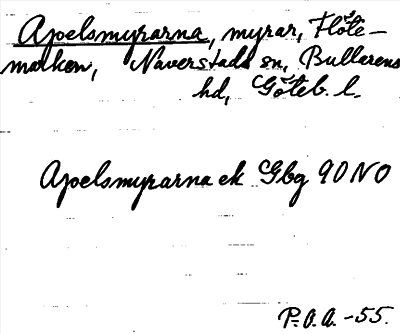 Apelsmyrarna, myrar, Flöte-
marken, Naverstads sn, Bullarens
hd, Göteb. l.
Apelsmyrarna ek Gbg 90 NO
P.O.A. -55.